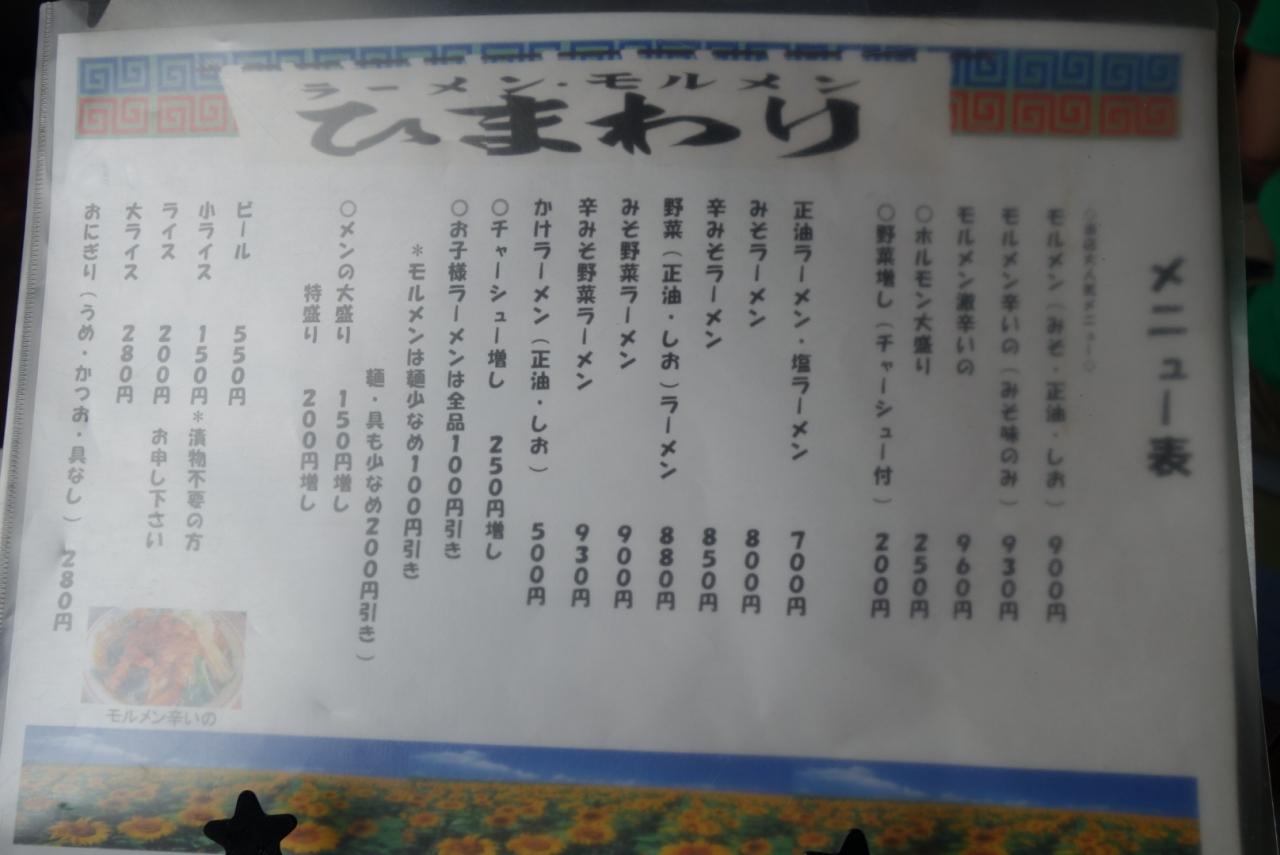 ラーメン・モルメン
ひまわり
メニュー表
◇当店大人気メニュー◇
モルメン（みそ・正油・しお） 900円
モルメン辛いの（みそ味のみ） 930円
モルメン激辛いの 960円
○ホルモン大盛り 250円
○野菜増し（チャーシュー付） 200円
正油ラーメン・塩ラーメン 700円
みそラーメン 800円
辛みそラーメン 850円
野菜（正油・しお）ラーメン 880円
みそ野菜ラーメン 900円
辛みそ野菜ラーメン 930円
かけラーメン（正油・しお） 500円
○チャーシュー増し 250円増し
○お子様ラーメンは全品100円引き
＊モルメンは麺少なめ100円引き
麺・具も少なめ200円引き）
○メンの大盛り 150円増し
特盛り 200円増し
ビール 550円
小ライス 150円＊漬物不要の方
ライス 200円 お申し下さい
大ライス 280円
おにぎり（うめ・かつお・具なし） 280円
モルメン辛いの